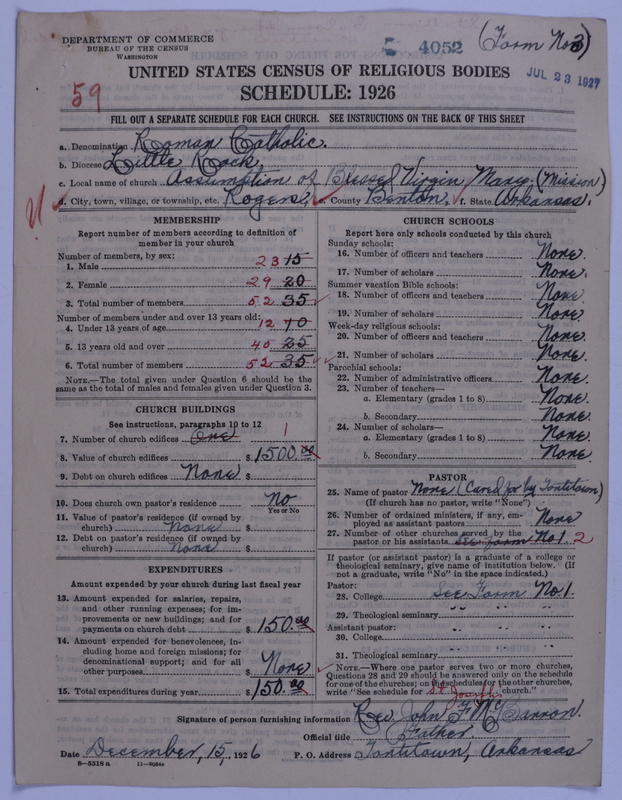 DEPARTMENT OF COMMERCE
BUREAU OF THE CENSUS
WASHINGTON
4052
(Form No 3)
JUL 23 1927
59
UNITED STATES CENSUS OF RELIGIOUS BODIES
SCHEDULE: 1926
FILL OUT A SEPARATE SCHEDULE FOR EACH CHURCH. SEE INSTRUCTIONS ON THE BACK OF THIS SHEET
a. Denomination Roman Catholic.
b. Diocese Little Rock,
c. Local name of church Assumption of Blessed Virgin Mary. (Mission)
d. City, town, village, or township, etc. Rogers, e. County Benton, f. State Arkansas.
MEMBERSHIP
Report number of members according to definition of
member in your church
Number of members, by sex:
1. Male 23 15
2. Female 29 20
3. Total number of members 52 35
Number of members under and over 13 years old:
4. Under 13 years of age 12 10
5. 13 years old and over 40 25
6. Total number of members 52 35
NOTE.—The total given under Question 6 should be the
same as the total of males and females given under Question 3.
CHURCH BUILDINGS
See instructions, paragraphs 10 to 12
7. Number of church edifices One 1
8. Value of church edifices $ 1500.00
9. Debt on church edifices None $
10. Does church own pastor's residence No
Yes or No
11. Value of pastor's residence (if owned by
church) None $
12. Debt on pastor's residence (if owned by
church) None $
EXPENDITURES
Amount expended by your church during last fiscal year
13. Amount expended for salaries, repairs,
and other running expenses; for im-
provements or new buildings; and for
payments on church debt $ 150.00
14. Amount expended for benevolences, in-
cluding home and foreign missions; for
denominational support; and for all
other purposes $ None
15. Total expenditures during year $ 150.00
CHURCH SCHOOLS
Report here only schools conducted by this church
Sunday schools:
16. Number of officers and teachers None.
17. Number of scholars None.
Summer vacation Bible schools:
18. Number of officers and teachers None
19. Number of scholars None.
Week-day religious schools:
20. Number of officers and teachers None.
21. Number of scholars None.
Parochial schools:
22. Number of administrative officers None.
23. Number of teachers—
a. Elementary (grades 1 to 8) None.
b. Secondary None.
24. Number of scholars—
a. Elementary (grades 1 to 8) None.
b. Secondary None.
PASTOR
25. Name of pastor None (Cared for by Tontitown)
(If church has no pastor, write "None")
26. Number of ordained ministers, if any, em-
ployed as assistant pastors None
27. Number of other churches served by the
pastor or his assistants See Form No 1. 2
If pastor (or assistant pastor) is a graduate of a college or
theological seminary, give name of institution below. (If
not a graduate, write "No" in the space indicated.)
Pastor:
28. College See Form No. 1.
29. Theological seminary " " "
Assistant pastor:
30. College " " "
31. Theological seminary " " "
NOTE.—Where one pastor serves two or more churches,
Questions 28 and 29 should be answered only on the schedule
for one of the churches; on the schedules for the other churches,
write "See schedule for St. Joseph's church."
Signature of person furnishing information Rev. John F. McCarron.
Official title Father
Date December, 15, 1926 P. O. Address Tontitown, Arkansas
8—5518 a